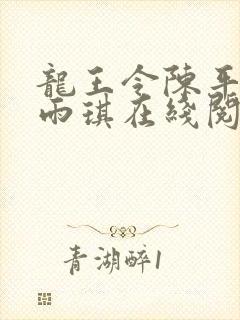 龍王令陳平
雨琪在綫閱
青湖醉1